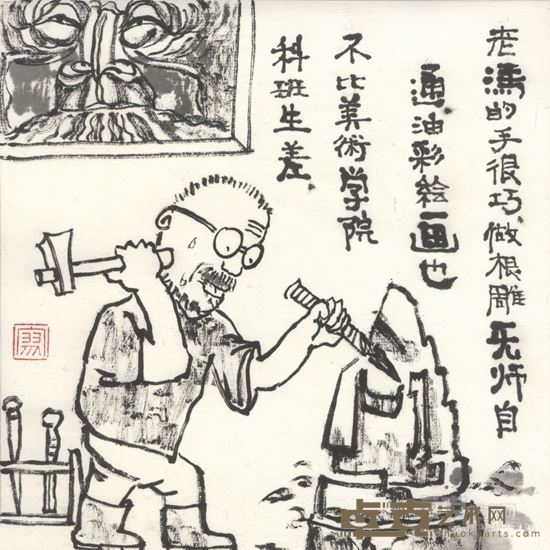 老馮的手很巧做根雕无师自
通油彩绘画也
不比美術学院
科班生差
卓克艺术网